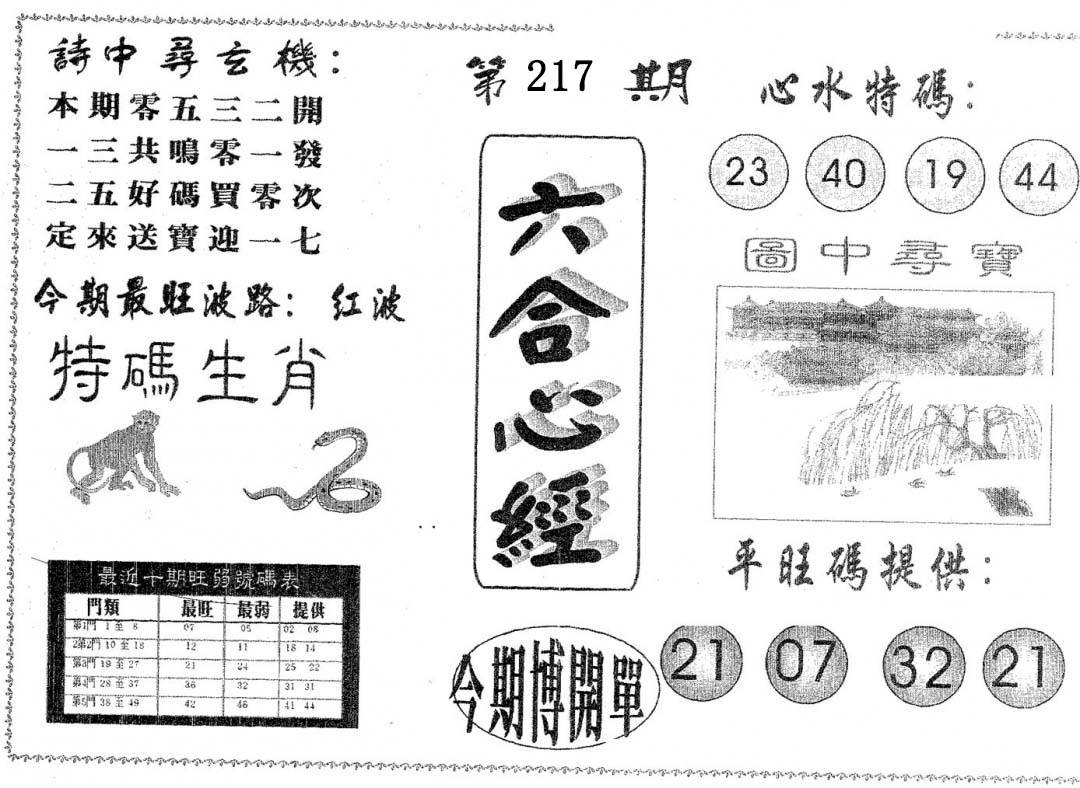 詩中尋玄機：
本期零五三二開
一三共鳴零一發
二五好碼買零次
定來送寶迎一七
今期最旺波路：红波
特碼生肖
最近十期旺弱號碼表
門類 最旺 最弱 提供
第1門 1 至 8 07 05 02 08
2第2門 10 至 18 12 11 18 14
第3門 19 至 27 21 24 25 22
第4門 28 至 37 36 32 31 31
第5門 38 至 49 42 46 41 44
第 217 期
六合心經
今期博開單
心水特碼：
23 40 19 44
圖中尋寶
平旺碼提供：
21 07 32 21